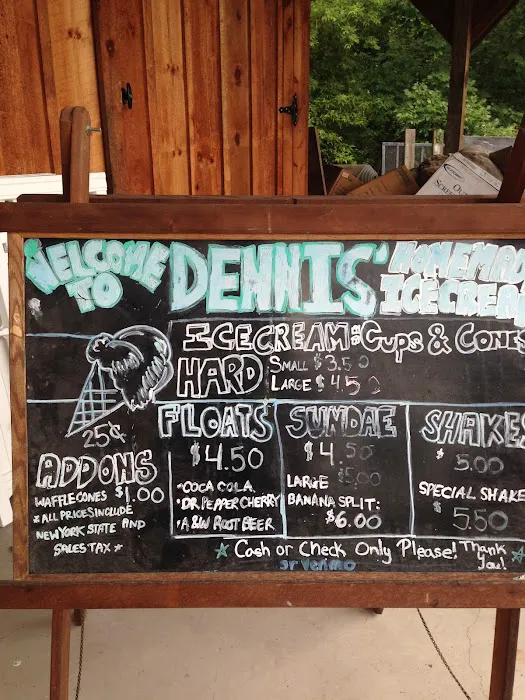 WELCOME TO
DENNIS'
HOMEMAD
ICECREA
ICECREAM: Cups & Cones
HARD
SMALL $3.50
LARGE $4.50
25¢
ADDONS
WAFFLECONES $1.00
*ALL PRICES INCLUDE
NEW YORK STATE AND
SALES TAX*
FLOATS
$4.50
•COCA COLA
•DR. PEPPER CHERRY
•A&W ROOT BEER
SUNDAE
$4.50
LARGE $5.00
BANANA SPLIT:
$6.00
SHAKES
$5.00
SPECIAL SHAKE
$5.50
☆ Cash or Check Only Please! Thank You! ☆
or Venmo